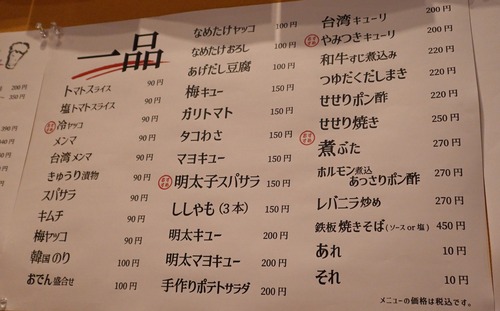 一品
トマトスライス 90円
塩トマトスライス 90円
冷ヤッコ 90円
メンマ 90円
台湾メンマ 90円
きゅうり漬物 90円
スパサラ 90円
キムチ 90円
梅ヤッコ 90円
韓国のり 100円
おでん盛合せ 100円
なめたけヤッコ 100円
なめたけおろし 100円
あげだし豆腐 100円
梅キュー 150円
ガリトマト 150円
タコわさ 150円
マヨキュー 150円
明太子スパサラ 150円
ししゃも(3本) 150円
明太キュー 200円
明太マヨキュー 200円
手作りポテトサラダ 200円
台湾キューリ 200円
やみつきキューリ 200円
和牛すじ煮込み 220円
つゆだくだしまき 220円
せせりポン酢 220円
せせり焼き 250円
煮ぶた 270円
ホルモン煮込
あっさりポン酢 270円
レバニラ炒め 270円
鉄板焼きそば(ソース or 塩) 450円
あれ 10円
それ 10円
メニューの価格は税込です。